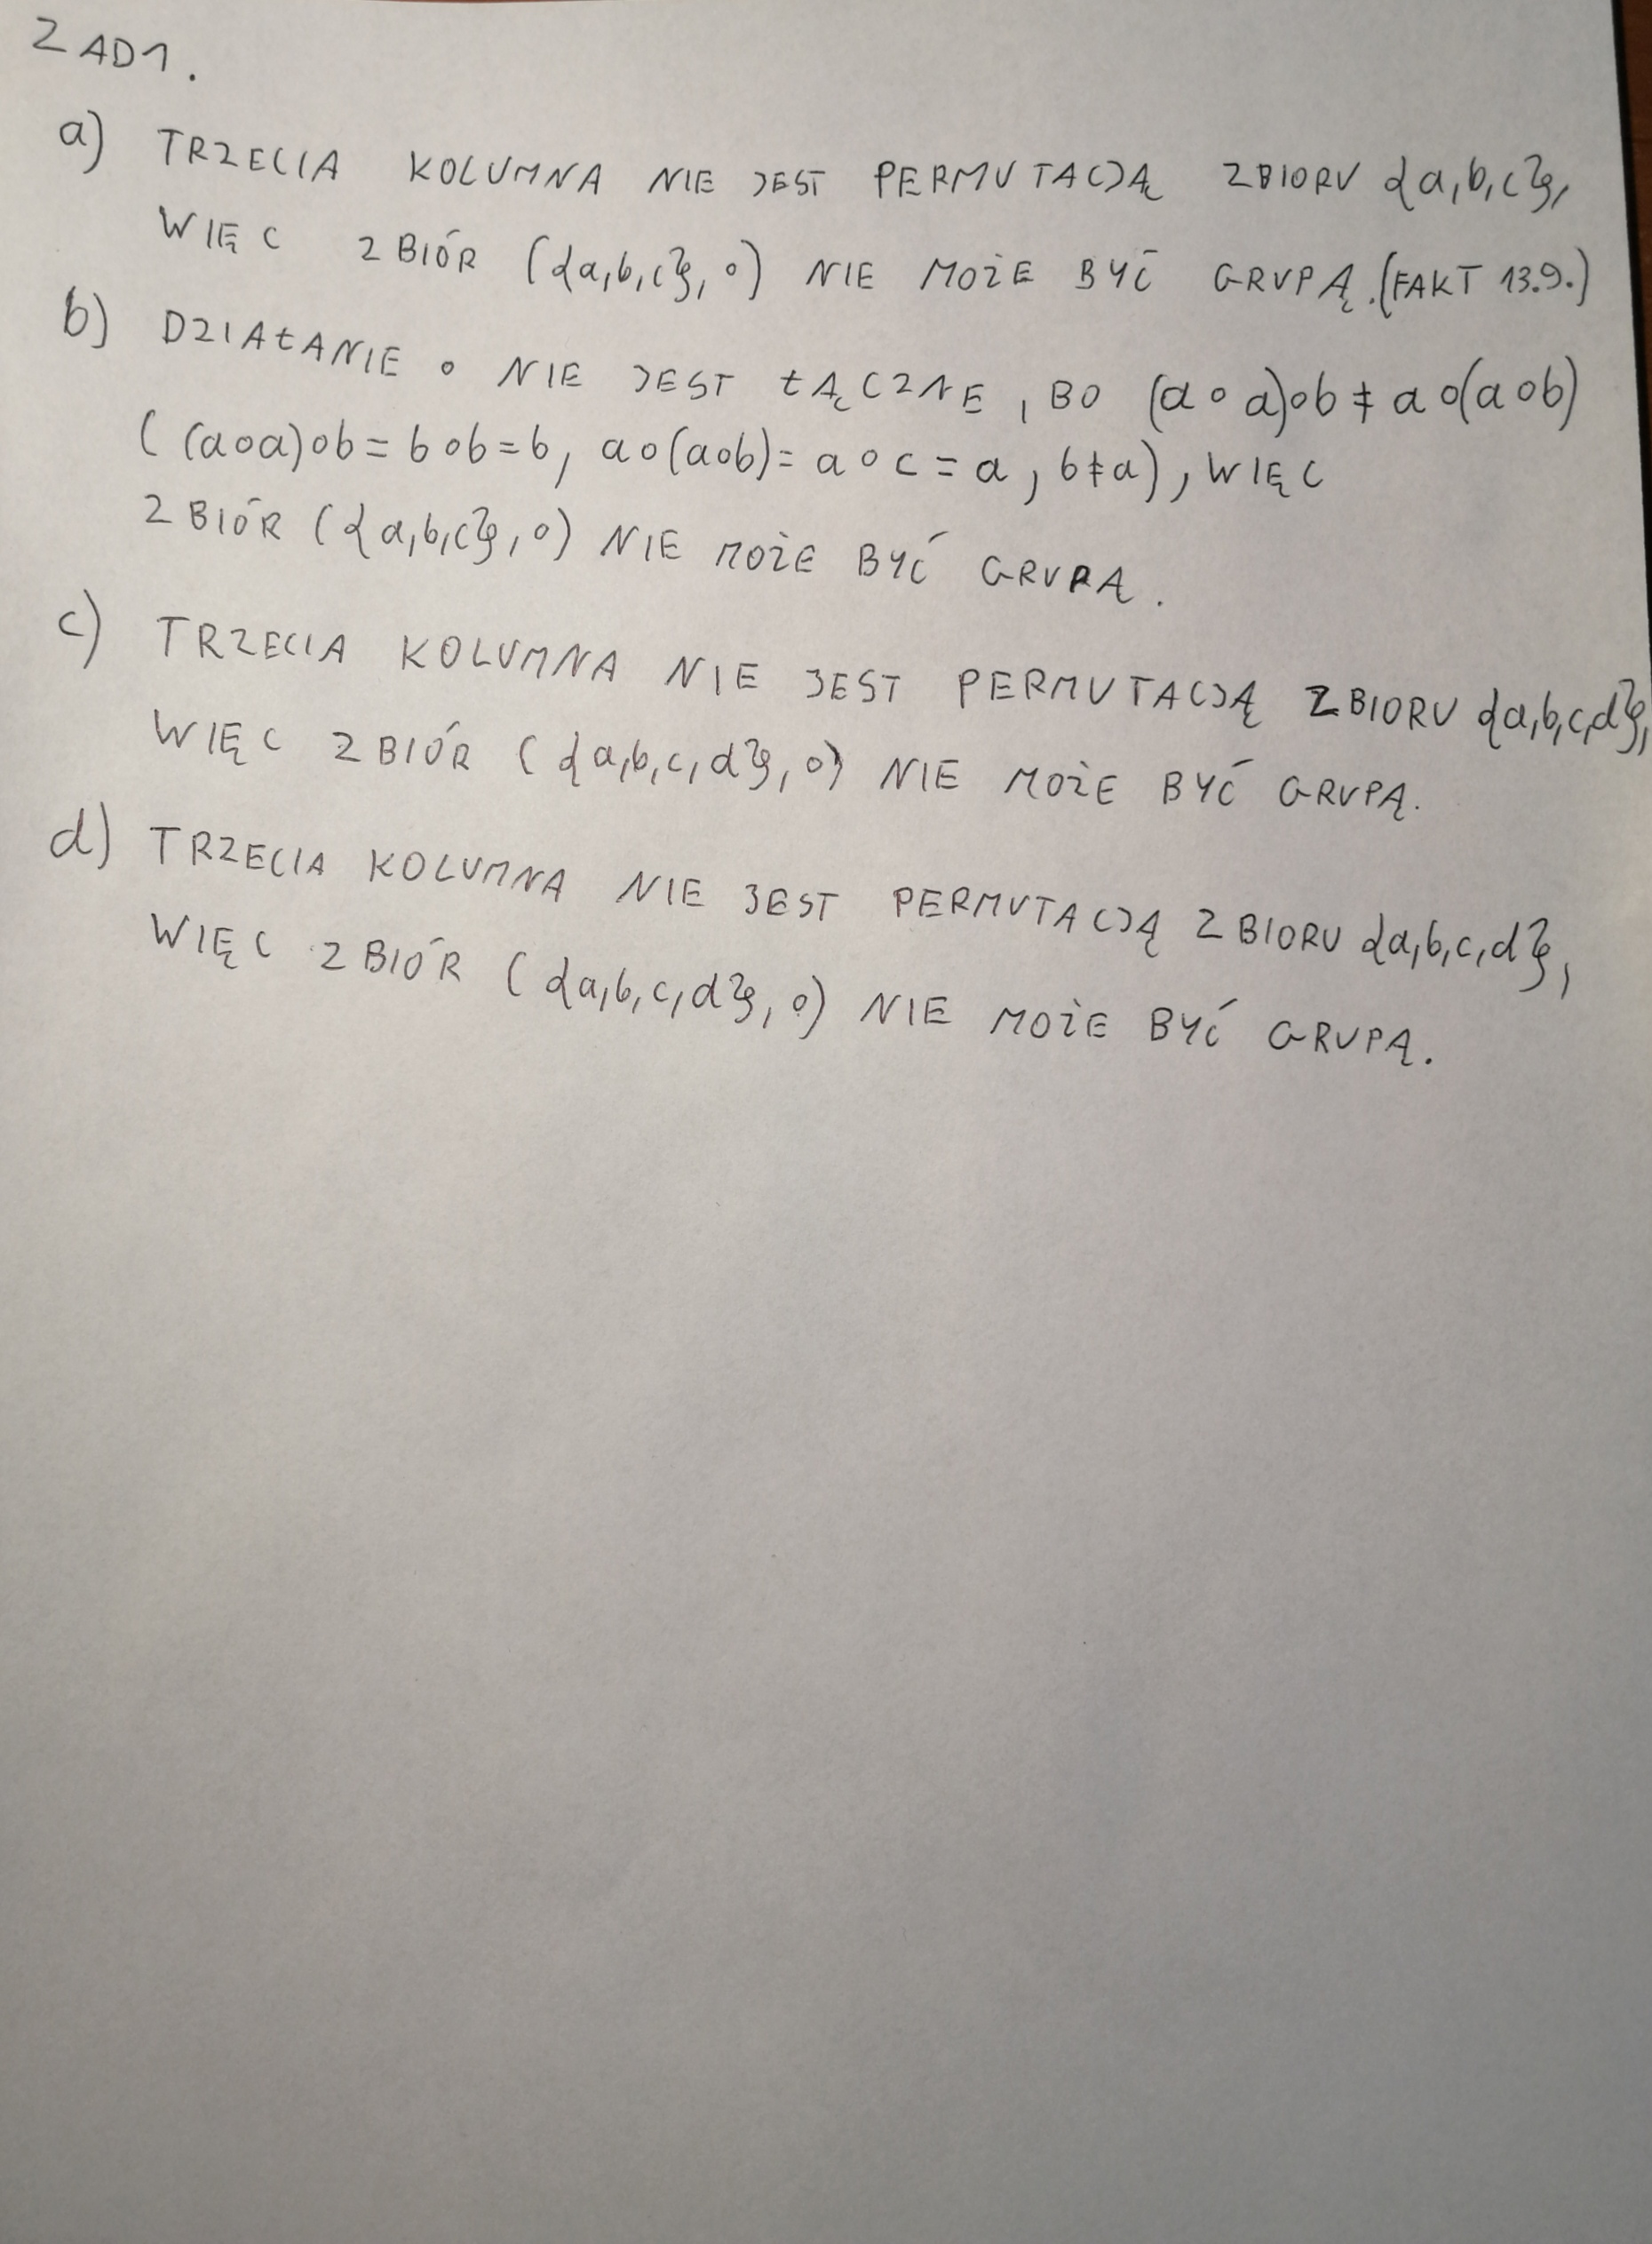 ZAD1.
a) TRZECIA KOLUMNA NIE JEST PERMUTACJĄ ZBIORU {a,b,c},
WIĘC ZBIÓR ({a,b,c}, ∘) NIE MOŻE BYĆ GRUPĄ. (FAKT 13.9.)
b) DZIAŁANIE ∘ NIE JEST ŁĄCZNE, BO (a∘a)∘b ≠ a∘(a∘b)
((a∘a)∘b = b∘b = b, a∘(a∘b) = a∘c = a, b≠a), WIĘC
ZBIÓR ({a,b,c}, ∘) NIE MOŻE BYĆ GRUPĄ.
c) TRZECIA KOLUMNA NIE JEST PERMUTACJĄ ZBIORU {a,b,c,d},
WIĘC ZBIÓR ({a,b,c,d}, ∘) NIE MOŻE BYĆ GRUPĄ.
d) TRZECIA KOLUMNA NIE JEST PERMUTACJĄ ZBIORU {a,b,c,d},
WIĘC ZBIÓR ({a,b,c,d}, ∘) NIE MOŻE BYĆ GRUPĄ.